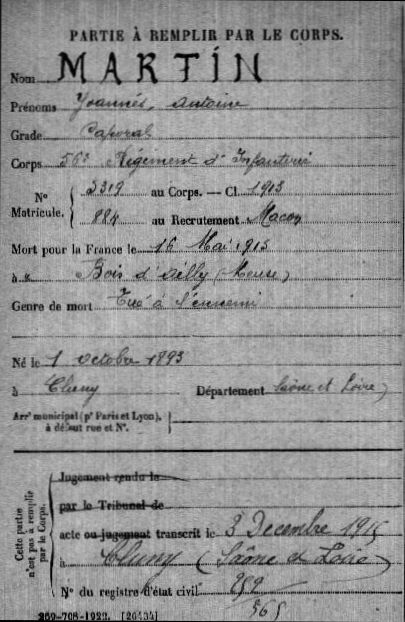 PARTIE À REMPLIR PAR LE CORPS.
Nom MARTIN
Prénoms Joannés, Antoine
Grade Caporal
Corps 56e Régiment d'Infanterie
N° Matricule. 5319 au Corps. — Cl. 1913
884 au Recrutement Macon
Mort pour la France le 16 Mai 1915
à Bois d'Ailly (Meuse)
Genre de mort Tué à l'ennemi
Né le 1 octobre 1893
à Cluny Département Saône et Loire
Arrt municipal (pr Paris et Lyon), à défaut rue et N°.
Cette partie n'est pas à remplir par le Corps.
Jugement rendu le
par le Tribunal de
acte ou jugement transcrit le 3 Decembre 1915
à Cluny (Saône et Loire)
N° du registre d'état civil
565
269-708-1922. [26434]